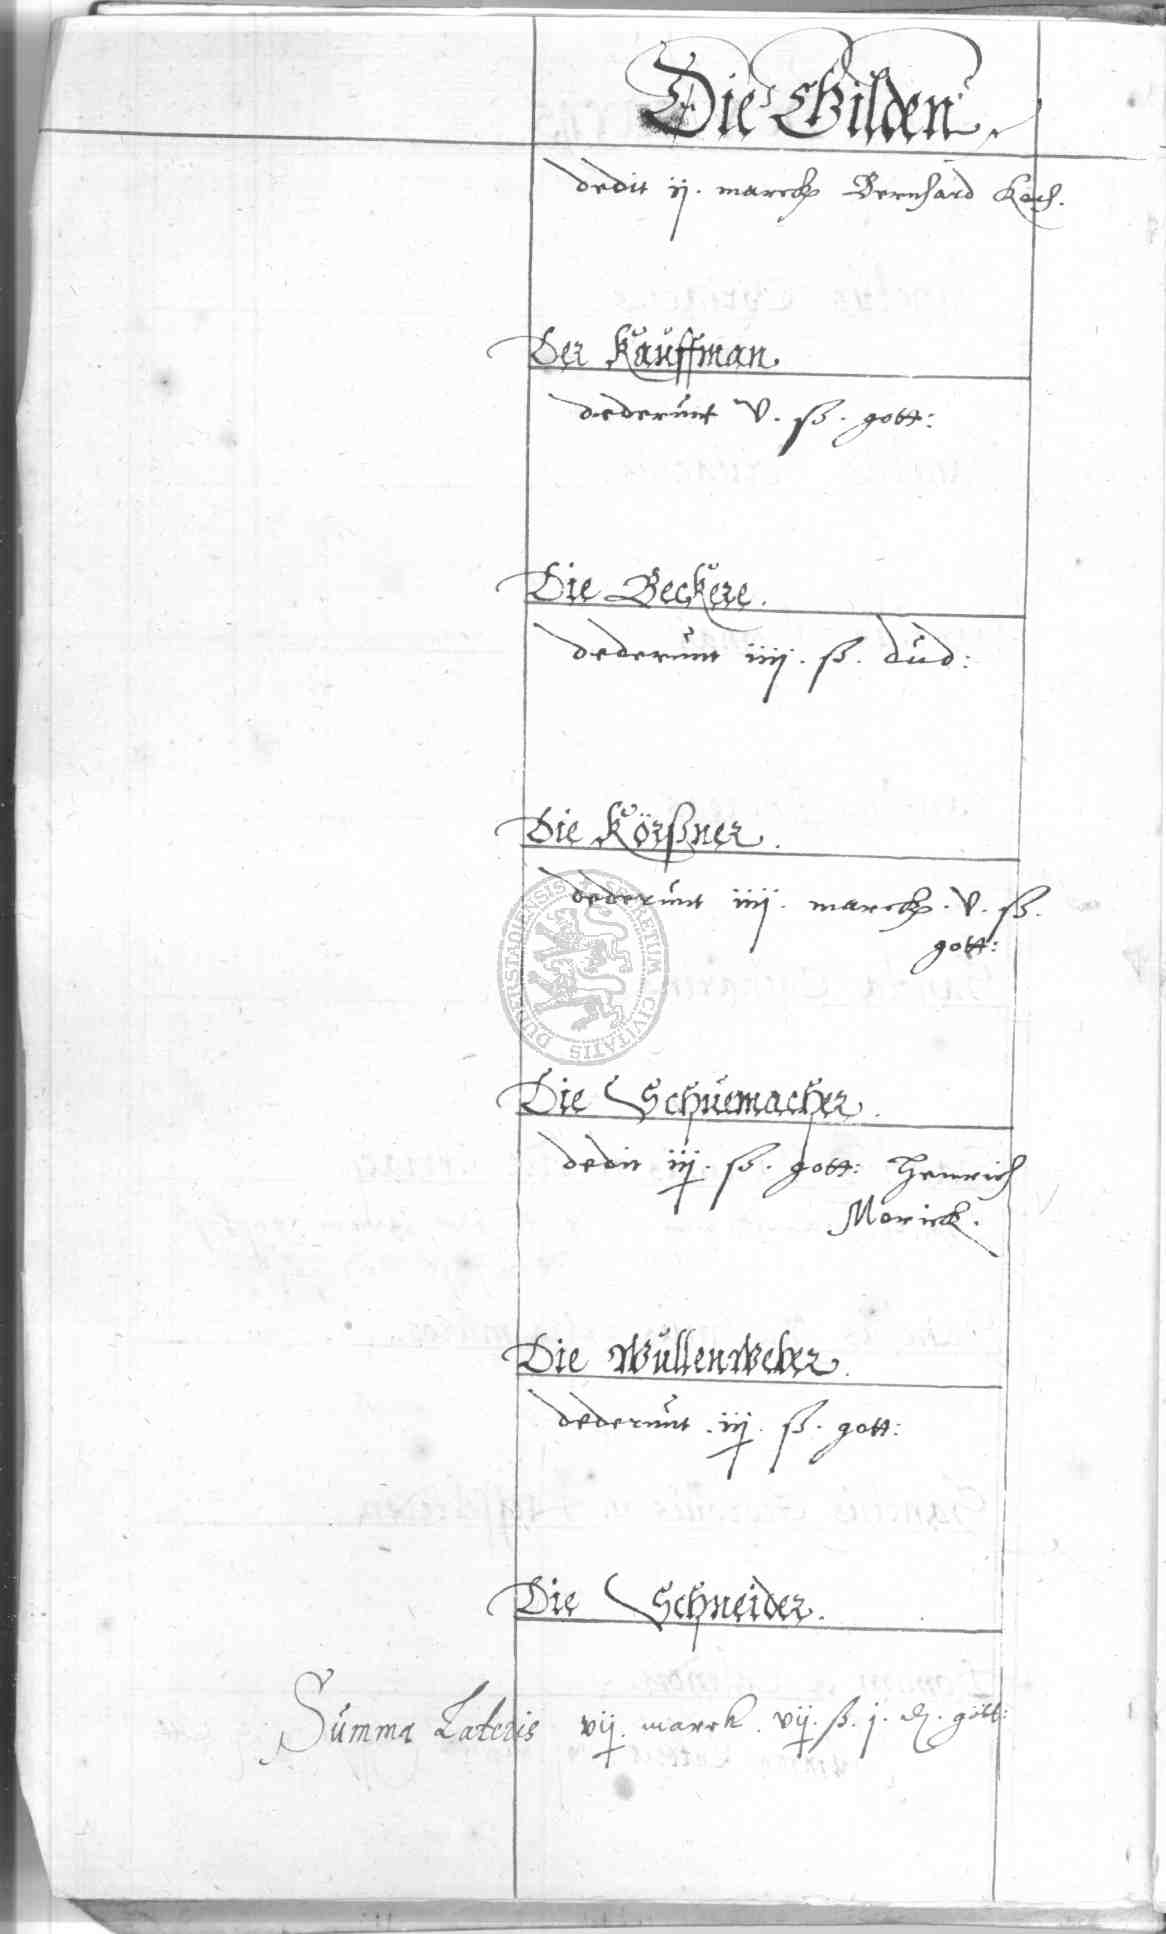 Die Gilden.
dedit ij. marck Bernhard Koch.
Der Kauffman.
dederunt v. ß. gott:
Die Beckere.
dederunt iiij. ß. dud:
Die Körßner.
dederunt iiij. marck. v. ß.
gott:
SECRETUM CIVITATIS DUDERSTADIENSIS
Die Schuemacher.
dedit iij. ß. gott: Henrich
Morick.
Die Wullenweber.
dederunt .iij. ß. gott:
Die Schneider.
Summa Lateris vij. marck. vij. ß. j. ₰. gott: